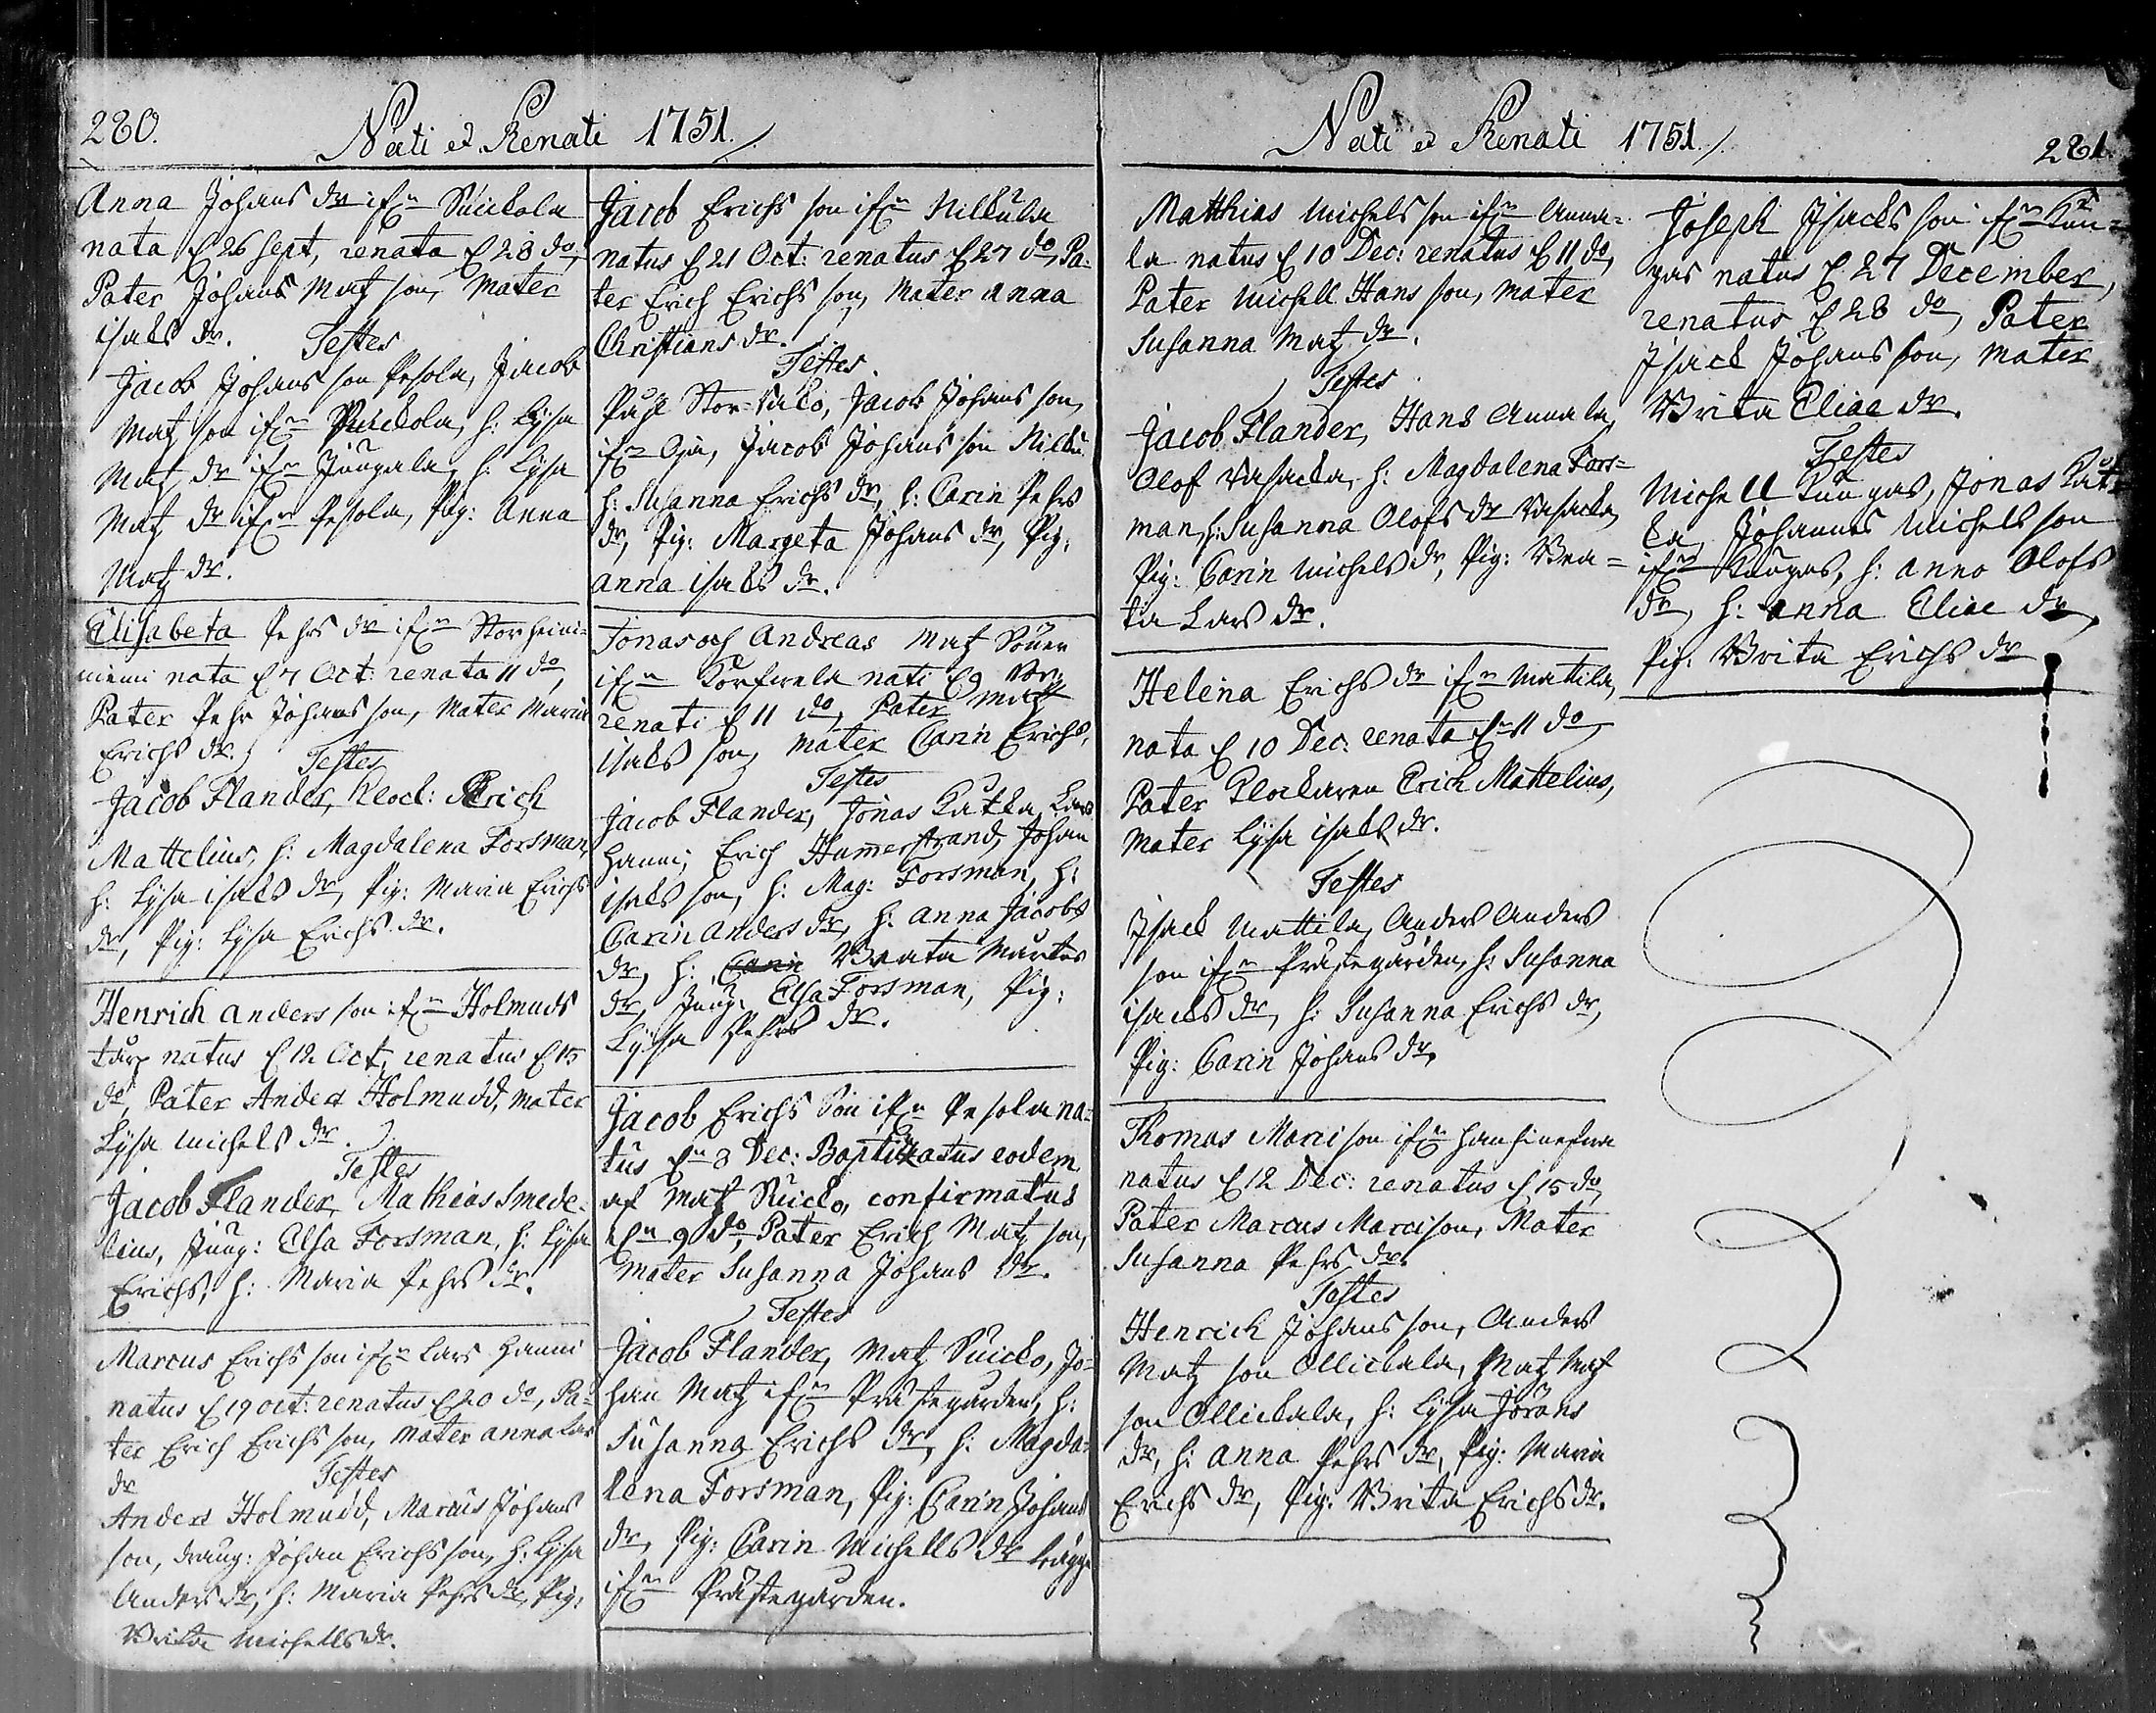 280.
Nati et Renati 1751.
Anna Johans dr ifrn Suickola
nata d 26 Sept, renata d 28 do,
Pater Johans Matz son, Mater
isaks dr. Testes
Jacob Johans son Pesola, Jacob
Matz son ifrn Suickola, h: Lysa
Matz dr ifrn Jungala, h: Lysa
Matz dr ifrn Pesola, Pig: Anna
Matz dr.
Elisabeta Pehrs dr ifrn Storheini=
niemi nata d 7 Oct: renata 11 do,
Pater Pehr Johans son, Mater Maria
Erichs dr. Testes
Jacob Flander, Klock: Erich
Mattelius, h: Magdalena Forsman,
h: Lysa isaks dr, Pig: Maria Erichs
dr, Pig: Lysa Erichs dr.
Henrich Anders son ifrn Holmuds
torp natus d 12 Oct, renatus d 15
do, Pater Anders Holmudd, Mater
Lysa Michels dr.
Testes
Jacob Flander, Mathias Smede-
lius, Jung: Elsa Forsman, h: Lysa
Erichs, h: Maria Pehrs dr.
Marcus Erichs son ifrn Lars Hanni
natus d 19 oct: renatus d 20 do, Pa-
ter Erich Erichs son, Mater anna Lars
dr Testes
Anders Holmudd, Marcus Johans
son, dräng: Johan Erichs son, h: Lysa
Anders dr, h: Maria Pehrs dr, Pig:
Brita Michells dr.
Jacob Erichs son ifrn Nikkula
natus d 21 Oct: renatus d 27 do, Pa-
ter Erich Erichs son, Mater Anna
Christians dr.
Testes.
Påhl Stor-Niko, Jacob Johans son
ifrn Oja, Jacob Johans son Nikku.
h: Susanna Erichs dr, h: Carin Pehrs
dr, Pig: Margeta Johans dr, Pig:
Anna isaks dr.
Jonas och Andreas Matz Söner
ifrn Korfwela nati d 9 Nov,
renati d 11 do, Pater Matz
isaks son, Mater Carin Erichs,
Testes
Jacob Flander, Jonas Katka, Lars
Hanni, Erich Hummerstrand, Johan
isaks son, h: Mag: Forsman, h:
Carin Anders dr, h: Anna Jacobs
dr, h: Carin Beata Mårtens
dr, Jung: Elsa Forsman, Pig:
Lysa Pehrs dr.
Jacob Erichs Son ifrn Pesola na-
tus dn 8 Dec: Baptizatus eodem
af Matz Suicko, confirmatus
dn 9 do, Pater Erich Matz son,
Mater Susanna Johans dr.
Testes
Jacob Flander, Matz Suicko, Jo-
han Matz ifrn Prästegården, h:
Susanna Erichs dr, h: Magda-
lena Forsman, Pig: Carin Johans
dr, Pig: Carin Michells dr
ifrn Prästegården.
Nati et Renati 1751.
281.
Matthias Michels son ifrn Anna=
la natus d 10 Dec: renatus d 11 do,
Pater Michell Hans son, Mater
Susanna Matz dr.
Testes
Jacob Flander, Hans Annala,
Olof Wasacka, h: Magdalena Fors=
man, h: Susanna Olofs dr Wasacka,
Pig: Carin Michels dr, Pig: Bea=
ta Lars dr.
Helena Erichs dr ifrn Mattila,
nata d 10 Dec: renata dn 11 do,
Pater Klockaren Erich Mattelius,
Mater Lysa isaks dr.
Testes
Jsack Mattila, Anders Anders
son ifrn Prästegården, h: Susanna
isacks dr, h: Susanna Erichs dr,
Pig: Carin Johans dr,
Thomas Marci son ifrn Hanhinefwa
natus d 12 Dec: renatus d 15 do,
Pater Marcus Marci son, Mater
Susanna Pehrs dr.
Testes
Henrich Johans son, Anders
Matz son Ollickala, Matz Matz
son Ollickala, h: Lysa Jörans
dr, h: Anna Pehrs dr, Pig: Maria
Erichs dr, Pig: Brita Erichs dr.
Joseph Jsacks son ifrn Kan=
gas natus d 27 December,
renatus d 28 do, Pater
Jsack Johans son, Mater
Brita Eliae dr.
Testes
Michell Kangas, Jonas Kat-
ka, Johannes Michels son
ifrn Kangas, h: Anna Olofs
dr, h: Anna Eliae dr,
Pig: Brita Erichs dr